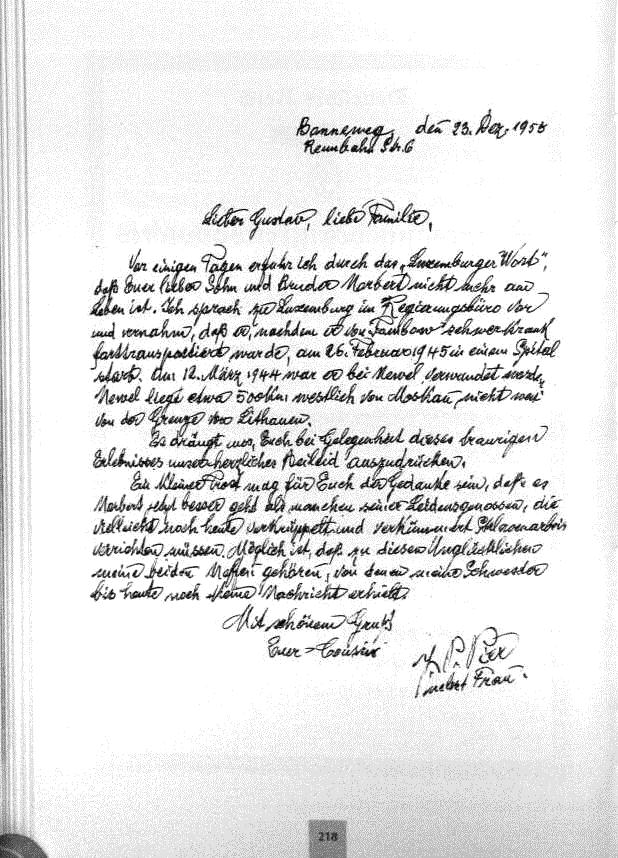 Bonneweg, den 23. Dez. 1955
Rennbahn Str. 6
Lieber Gustav, liebe Familie,
Vor einigen Tagen erfuhr ich durch das „Luxemburger Wort",
daß Euer lieber Sohn und Bruder Norbert nicht mehr am
Leben ist. Ich sprach zu Luxemburg im Regierungsbüro vor
und vernahm, daß er, nachdem er von Tambow schwerkrank
forttransportiert wurde, am 26. Februar 1945 in einem Spital
starb. Am 12. März 1944 war er bei Newel verwundet
Newel liegt etwa 500 Km westlich von Moskau, nicht weit
von der Grenze von Lithauen.
Es drängt uns, Euch bei Gelegenheit dieses traurigen
Erlebnisses unser herzliches Beileid auszudrücken.
Ein kleiner Trost mag für Euch der Gedanke sein, daß es
Norbert jetzt besser geht als manchen seiner Leidensgenossen, die
vielleicht noch heute verkrüppelt und verkümmert Sklavenarbeit
verrichten müssen. Möglich ist, daß zu diesen Unglücklichen
meine beiden Neffen gehören, von denen meine Schwester
bis heute noch keine Nachricht erhielt.
Mit schönem Gruß
Euer Cousin
P. Pier
nebst Frau.
218